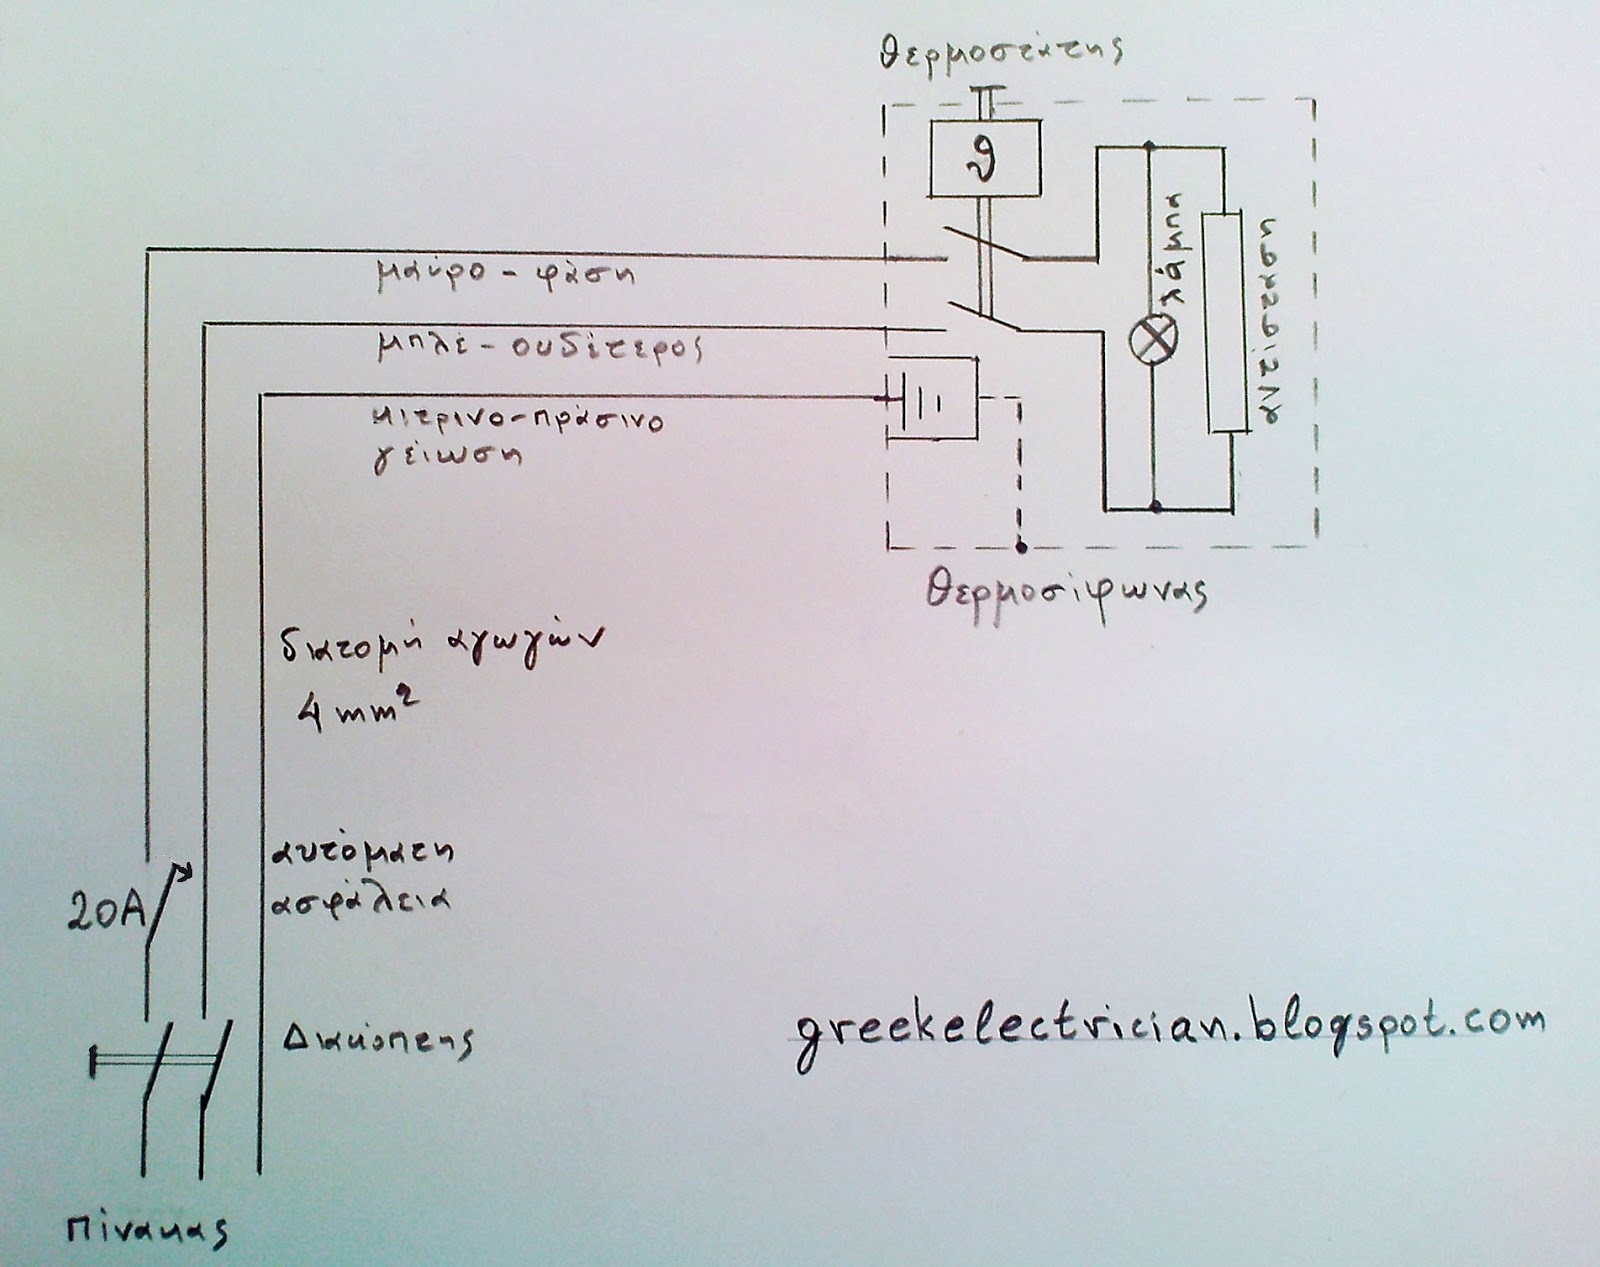 θερμοστάτης
θ
μαύρο - φάση
μπλέ - ουδέτερος
κιτρινο - πράσινο
γείωση
λάμπα
αντίσταση
θερμοσίφωνας
διατομή αγωγών
4 mm²
αυτόματη
ασφάλεια
20A
Διακόπτης
greekelectrician.blogspot.com
πίνακας